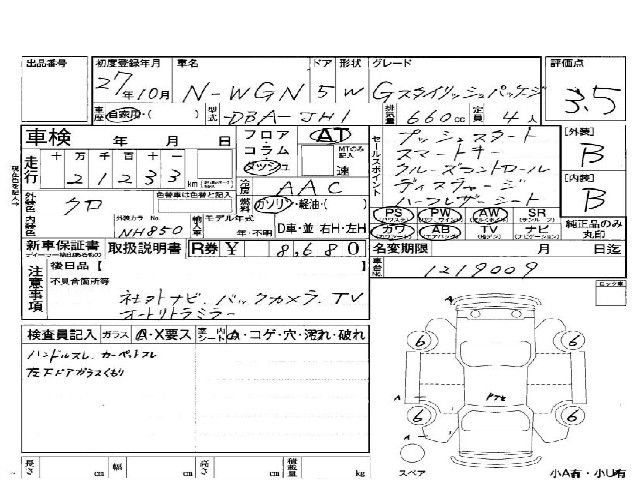 出品番号 初度登録年月 車名 ドア 形状 グレード 評価点
27年10月 N-WGN 5 W Gスタイリッシュパッケージ 3.5
車歴 自家用・( ) 型式 DBA-JH1 排気量 660cc 定員 4人
車検 年 月 日 フロア・コラム ダッシュ AT MTのみ記入 速
走行 十 万 千 百 十 一
2 1 2 3 3 km
冷房 AAC
燃料 ガソリン・軽油・( )
セールスポイント
プッシュスタート
スマートキー
クルーズコントロール
ディスチャージ
ハーフレザーシート
[外装] B
[内装] B
外装色 クロ 色替車は色替と記入
内装色 外装カラーNo. NH850
輸入車 モデル年式 年・不明 D車・並 右H・左H
PS PW AW SR
カワ AB TV ナビ
純正品のみ丸印
新車保証書 取扱説明書 R券 ¥ 8,680 名変期限 月 日迄
車台No. 1219009
注意事項 後日品【 】
不具合箇所等
社外ナビ、バックカメラ、TV
オートリトラミラー
ロック車
検査員記入 ガラス A・X要ス 室内シート A・コゲ・穴・汚れ・破れ
ハンドルスレ、カーペットスレ
左下ドアガラスくもり
6 6
A
A 6 6
スペア
長さ cm 幅 cm 高さ cm 積載量 kg
小A有・小U有